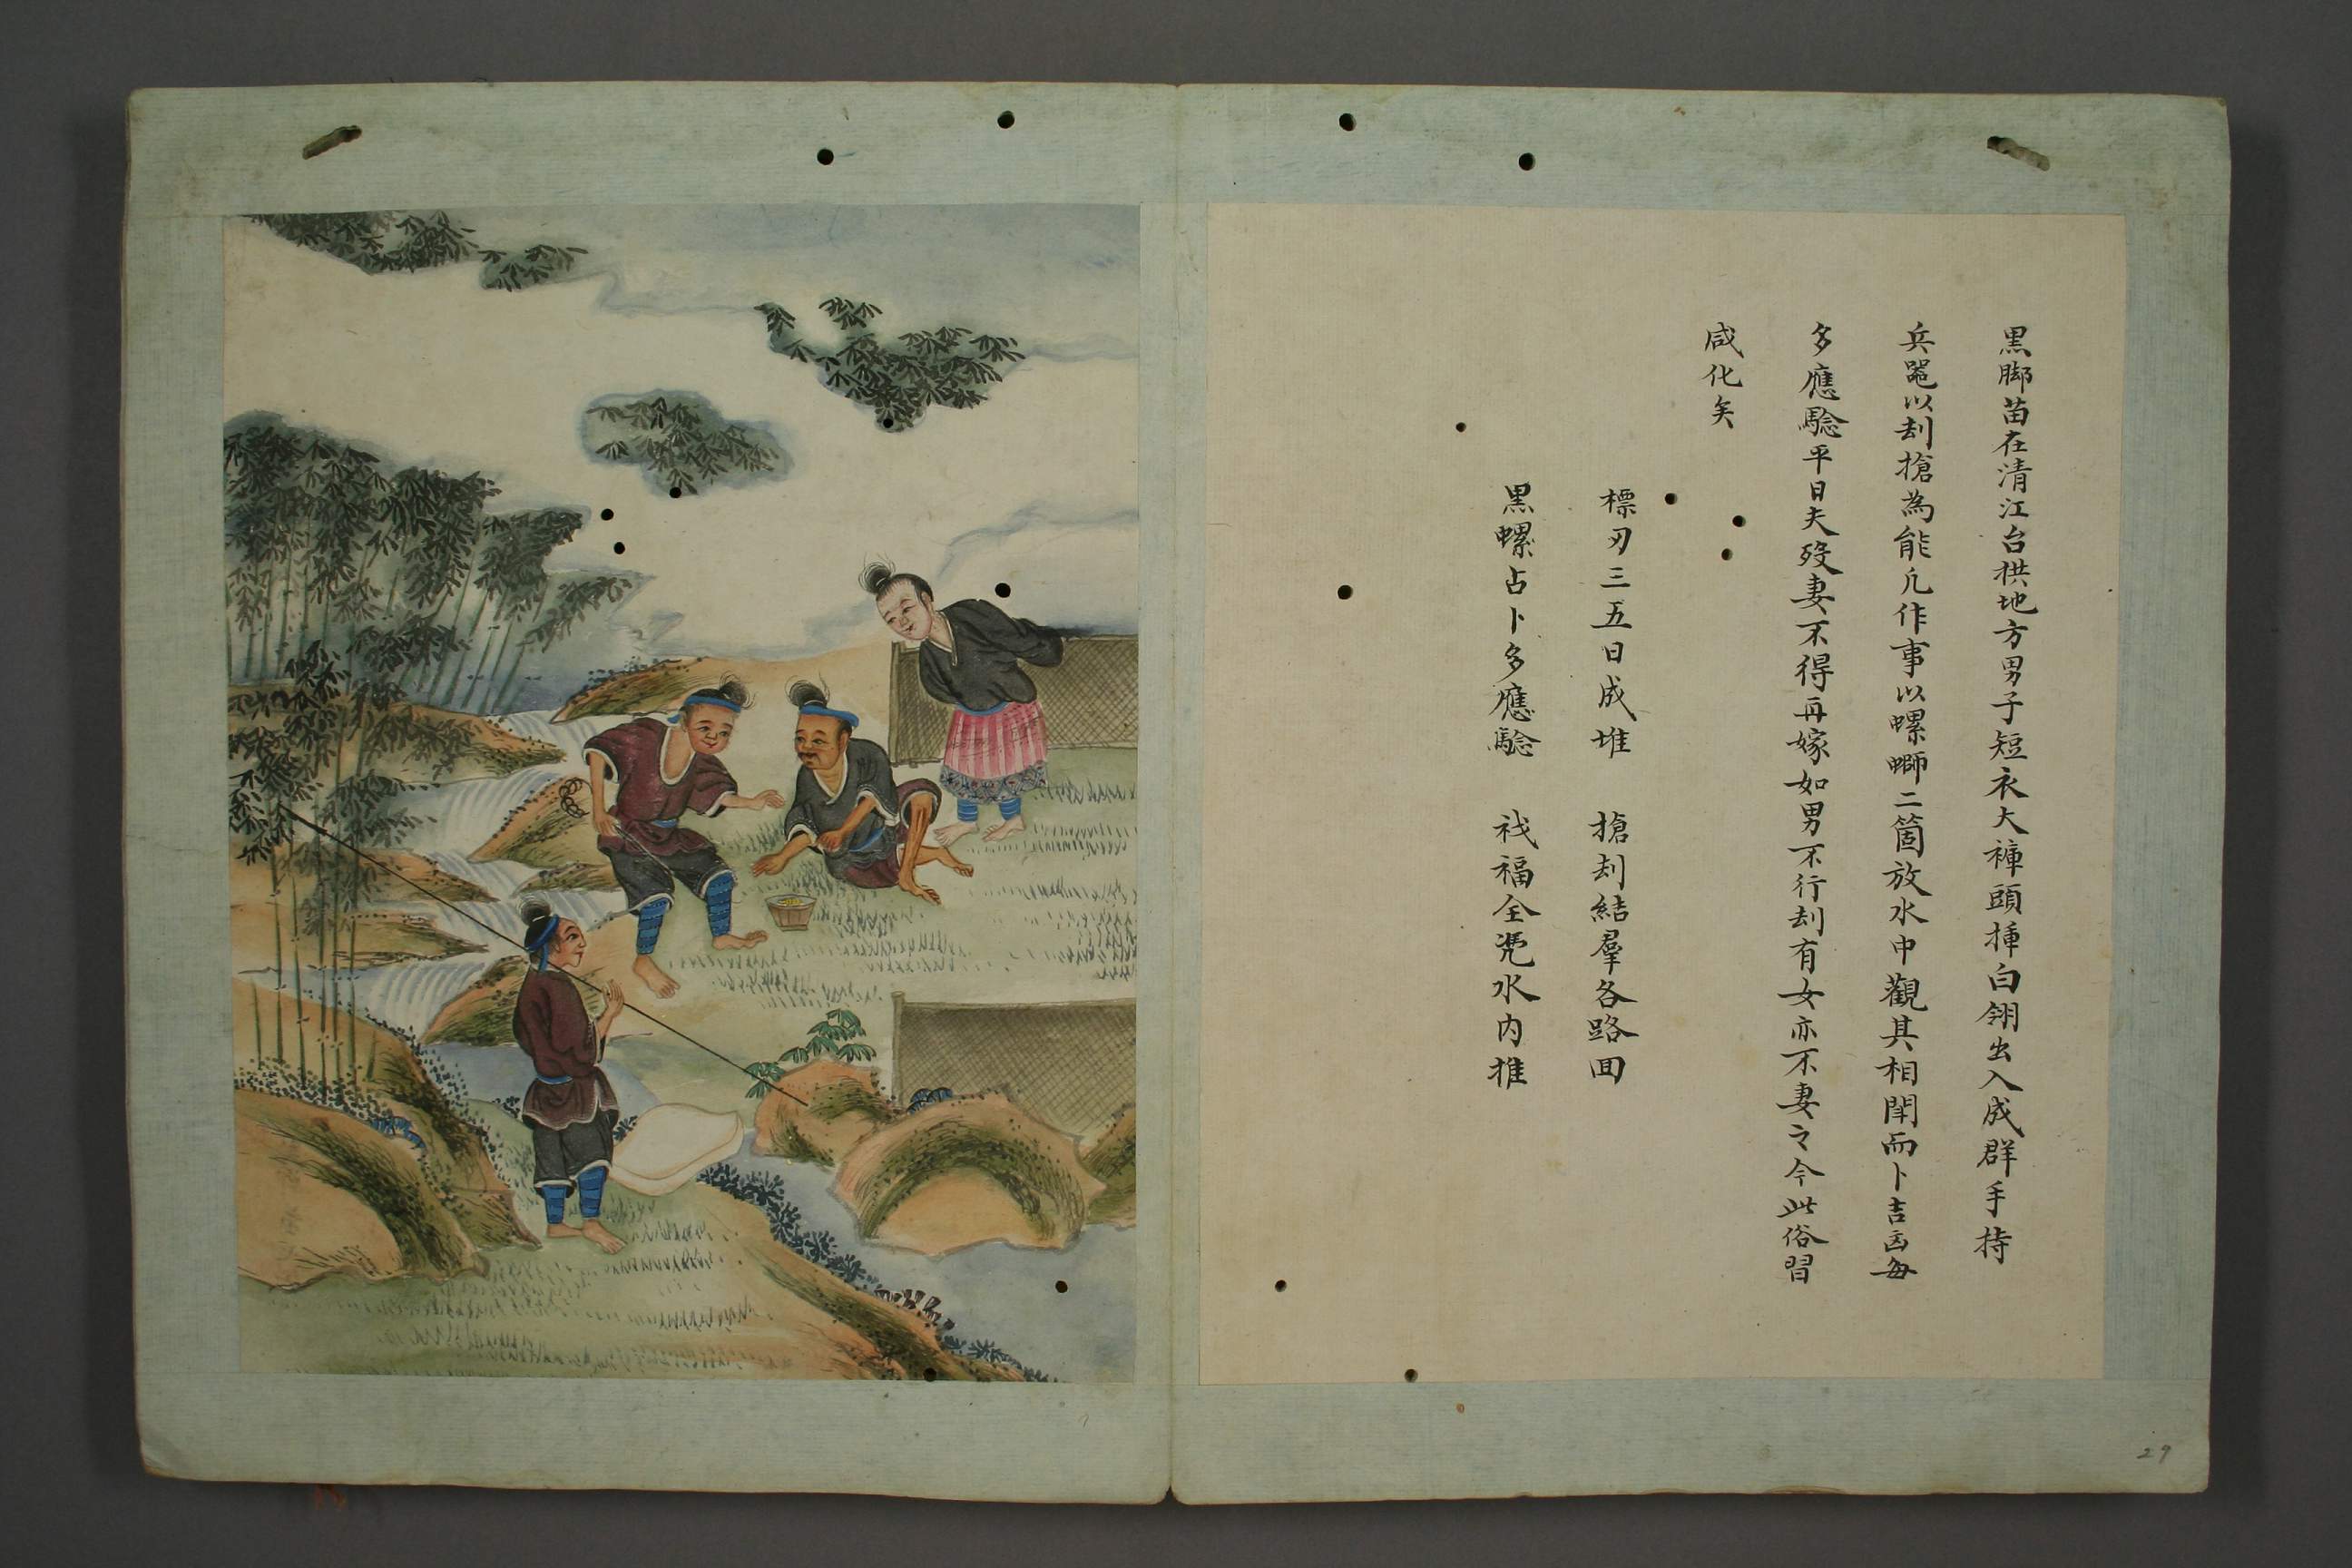 黒脚苗在清江台栱地方男子短衣大褲頭揷白翎出入成群手持
兵噐以刦搶為能凢作事以螺螄二箇放水中觀其相鬧而卜吉凶每
多應驗平日夫殁妻不得再嫁如男不行刦有女亦不妻之今此俗習
咸化矣
標刃三五日成堆 搶刦結羣各路囬
黒螺占卜多應驗 祸福全凭水内推
29